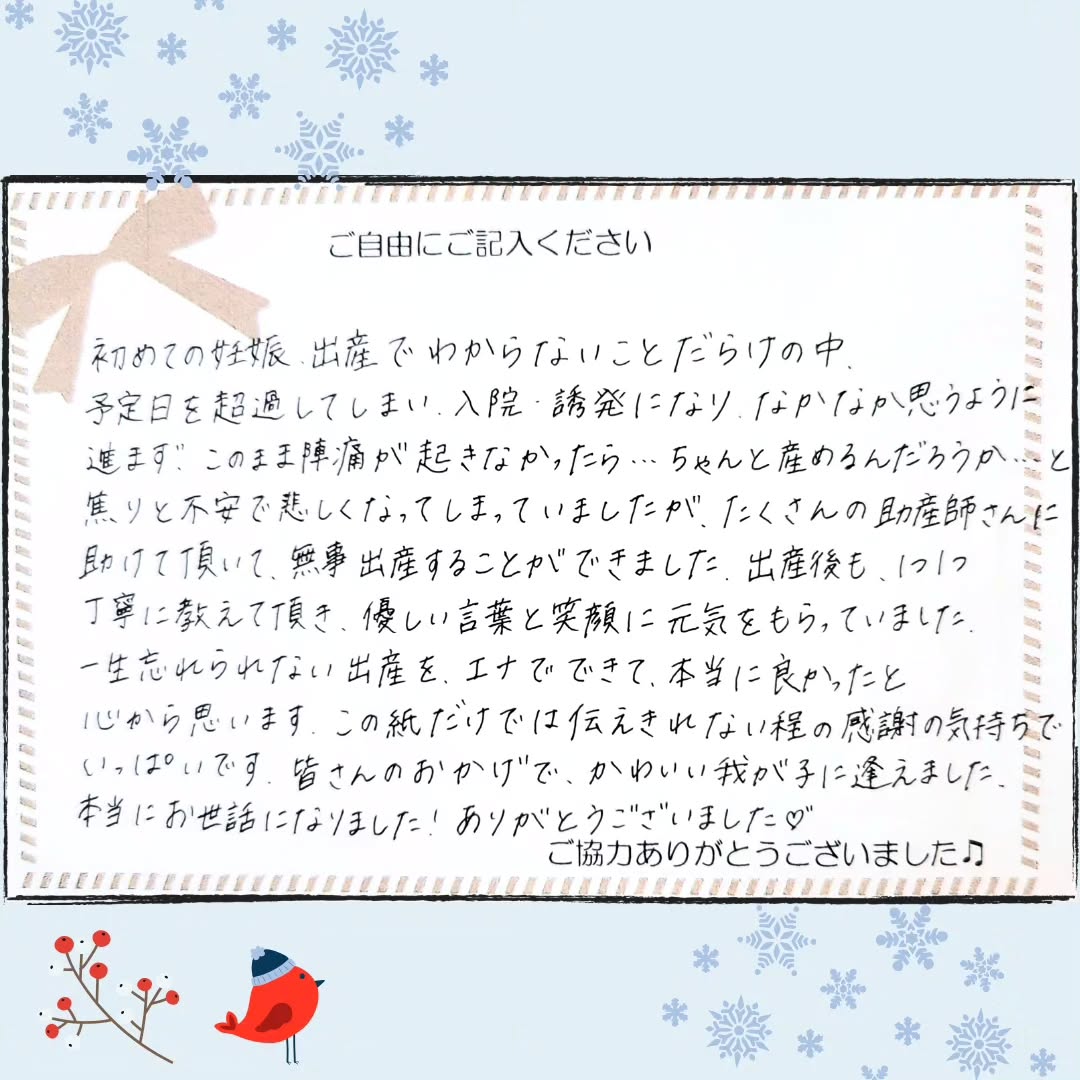 ご自由にご記入ください
初めての妊娠、出産でわからないことだらけの中、
予定日を超過してしまい、入院・誘発になり、なかなか思うように
進まず、このまま陣痛が起きなかったら…ちゃんと産めるんだろうか…と
焦りと不安で悲しくなってしまっていましたが、たくさんの助産師さんに
助けて頂いて、無事出産することができました。出産後も、1つ1つ
丁寧に教えて頂き、優しい言葉と笑顔に元気をもらっていました。
一生忘れられない出産を、エナでできて、本当に良かったと
心から思います。この紙だけでは伝えきれない程の感謝の気持ちで
いっぱいです。皆さんのおかげで、かわいい我が子に逢えました。
本当にお世話になりました！ありがとうございました♡
ご協力ありがとうございました♫